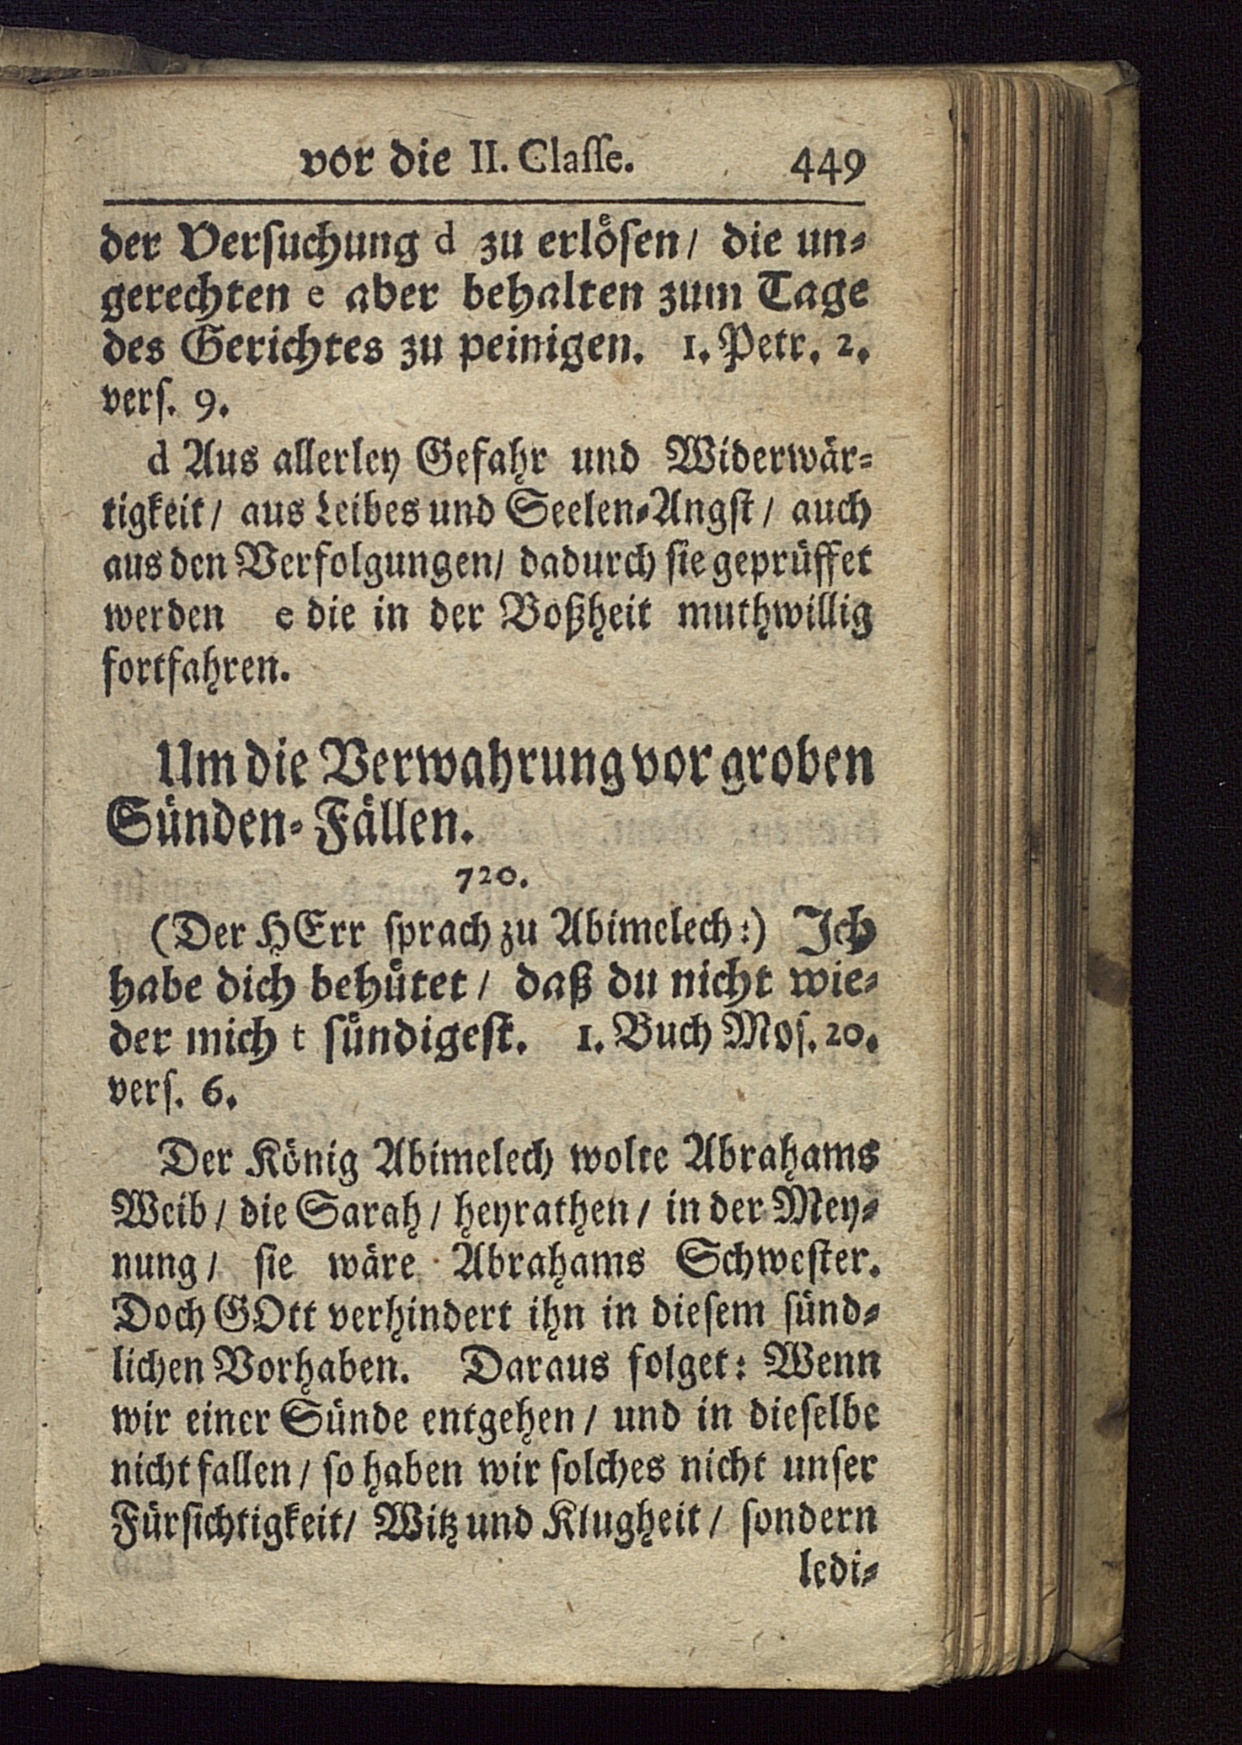 vor die II. Classe. 449
der Versuchung d zu erlösen/ die un-
gerechten e aber behalten zum Tage
des Gerichtes zu peinigen. 1. Petr. 2.
vers. 9.
d Aus allerley Gefahr und Widerwär-
tigkeit/ aus Leibes und Seelen-Angst/ auch
aus den Verfolgungen/ dadurch sie geprüffet
werden e die in der Boßheit muthwillig
fortfahren.
Um die Verwahrung vor groben
Sünden-Fällen.
720.
(Der HErr sprach zu Abimelech:) Ich
habe dich behütet/ daß du nicht wie-
der mich t sündigest. 1. Buch Mos. 20.
vers. 6.
Der König Abimelech wolte Abrahams
Weib/ die Sarah/ heyrathen/ in der Mey-
nung/ sie wäre Abrahams Schwester.
Doch GOtt verhindert ihn in diesem sünd-
lichen Vorhaben. Daraus folget: Wenn
wir einer Sünde entgehen/ und in dieselbe
nicht fallen/ so haben wir solches nicht unser
Fürsichtigkeit/ Witz und Klugheit/ sondern
ledi-